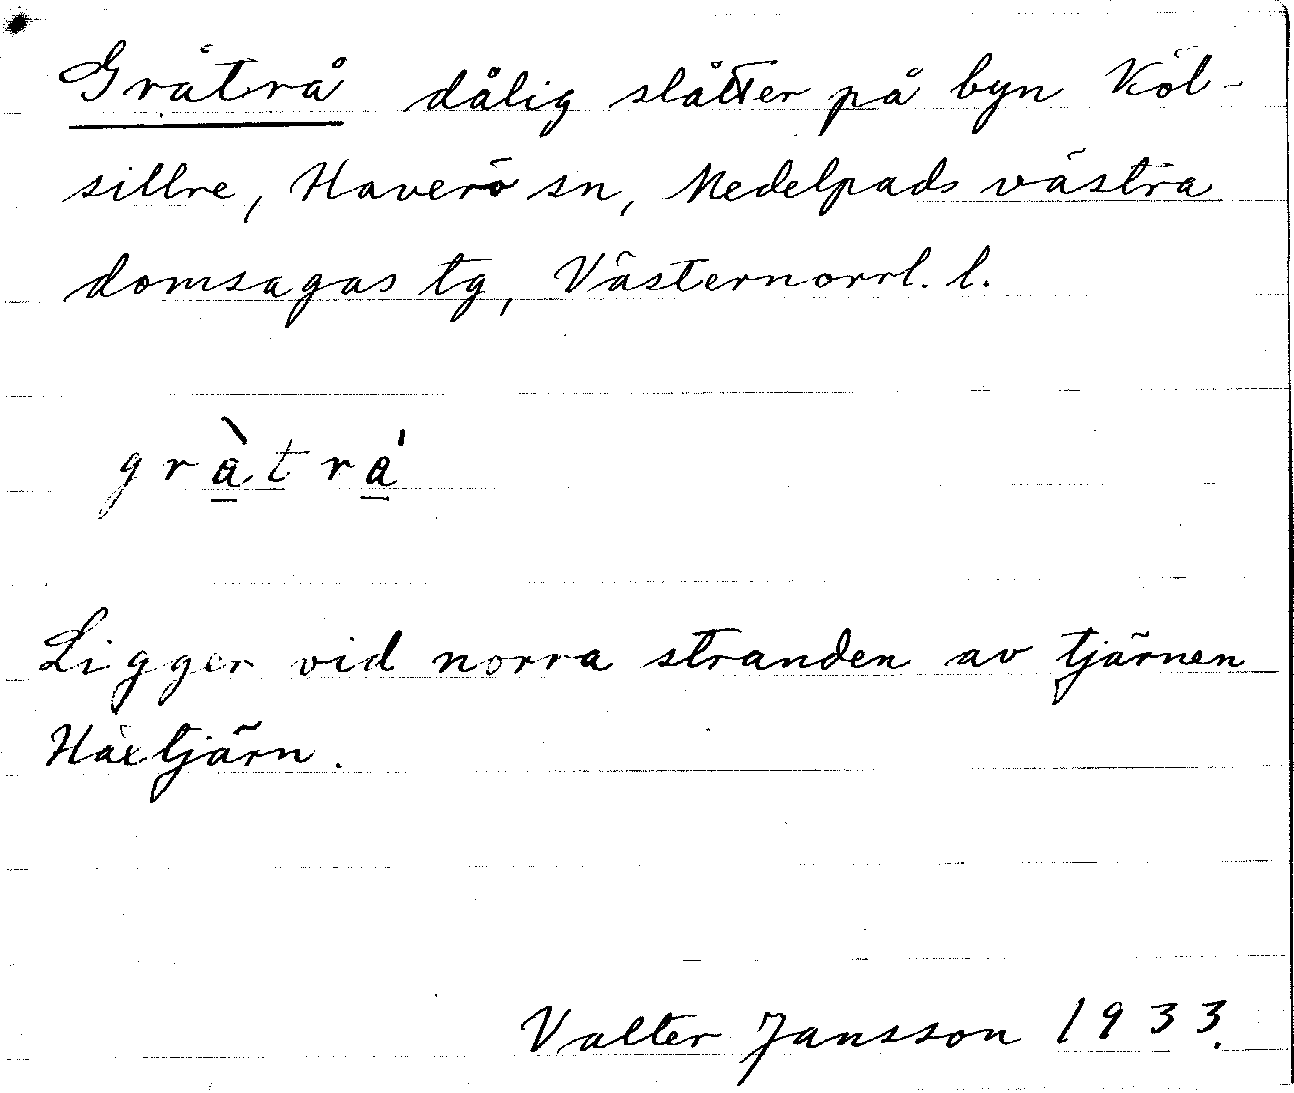 Gråtrå dålig slåtter på byn Köl-
sillre, Haverö sn, Medelpads västra
domsagas tg, Västernorrl. l.
gràtrá
Ligger vid norra stranden av tjärnen
Häxtjärn.
Valter Jansson 1933.